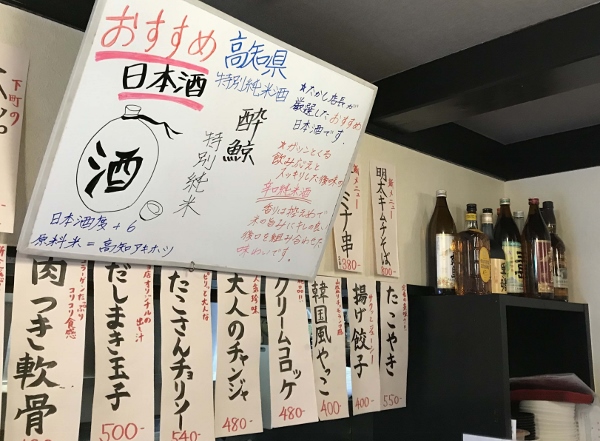 おすすめ
日本酒
高知県
特別純米酒
酔鯨
特別純米
酒
日本酒度 +6
原料米 = 高知アキホツ
★たかし店長が
厳選したおすすめ
日本酒です。
★ガツンとくる
飲み応えと
スッキリした後味の
辛口純米酒
香りは控えめで
米の旨みにキレの良い
後口を組み合わせた
味わいです。
下町の
新メニュー
明太キムチそば
800-
新メニュー
ミナ串
380-
コリコリ食感
肉つき軟骨
400-
だしまき玉子
500-
たこさんチョリソー
540-
大人のチャンジャ
480-
クリームコロッケ
480-
韓国風やっこ
400-
揚げ餃子
400-
たこやき
550-